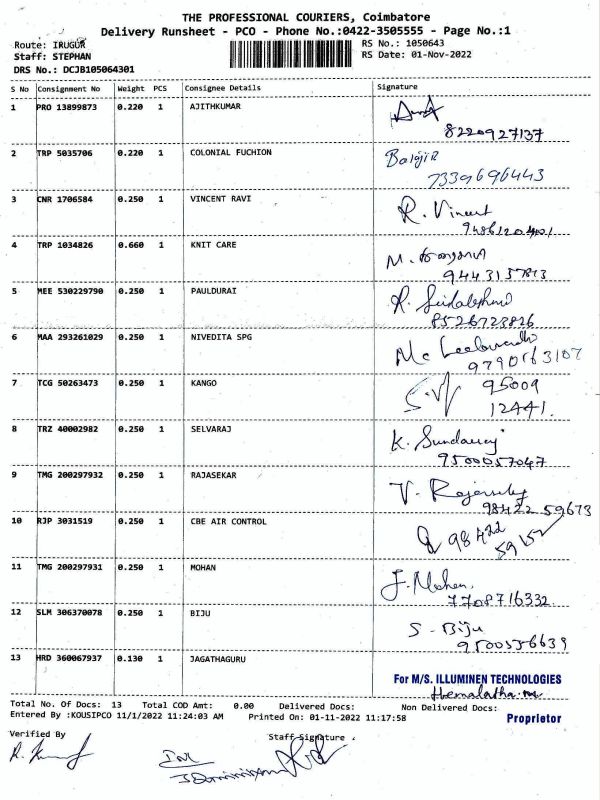 THE PROFESSIONAL COURIERS, Coimbatore
Delivery Runsheet - PCO - Phone No.:0422-3505555 - Page No.:1
Route: IRUGUR
RS No.: 1050643
Staff: STEPHAN
RS Date: 01-Nov-2022
DRS No.: DCJB105064301
S No Consignment No Weight PCS Consignee Details Signature
1 PRO 13899873 0.220 1 AJITHKUMAR
8220927137
2 TRP 5035706 0.220 1 COLONIAL FUCHION Balaji R
7339696443
3 CNR 1706584 0.250 1 VINCENT RAVI R. Vincent
4 TRP 1034826 0.660 1 KNIT CARE M.
5 MEE 530229790 0.250 1 PAULDURAI R.
8526723826
6 MAA 293261029 0.250 1 NIVEDITA SPG
9790163107
7 TCG 50263473 0.250 1 KANGO 95009
12441
8 TRZ 40002982 0.250 1 SELVARAJ K.
9500057047
9 TMG 200297932 0.250 1 RAJASEKAR V.
98422 59673
10 RJP 3031519 0.250 1 CBE AIR CONTROL 98422
59152
11 TMG 200297931 0.250 1 MOHAN J. Mohan
7708716332
12 SLM 306370078 0.250 1 BIJU S - Biju
9500556639
13 HRD 360067937 0.130 1 JAGATHAGURU
For M/S. ILLUMINEN TECHNOLOGIES
Hemalatha.m
Proprietor
Total No. Of Docs: 13 Total COD Amt: 0.00 Delivered Docs: Non Delivered Docs:
Entered By :KOUSIPCO 11/1/2022 11:24:03 AM Printed On: 01-11-2022 11:17:58
Verified By
Staff Signature